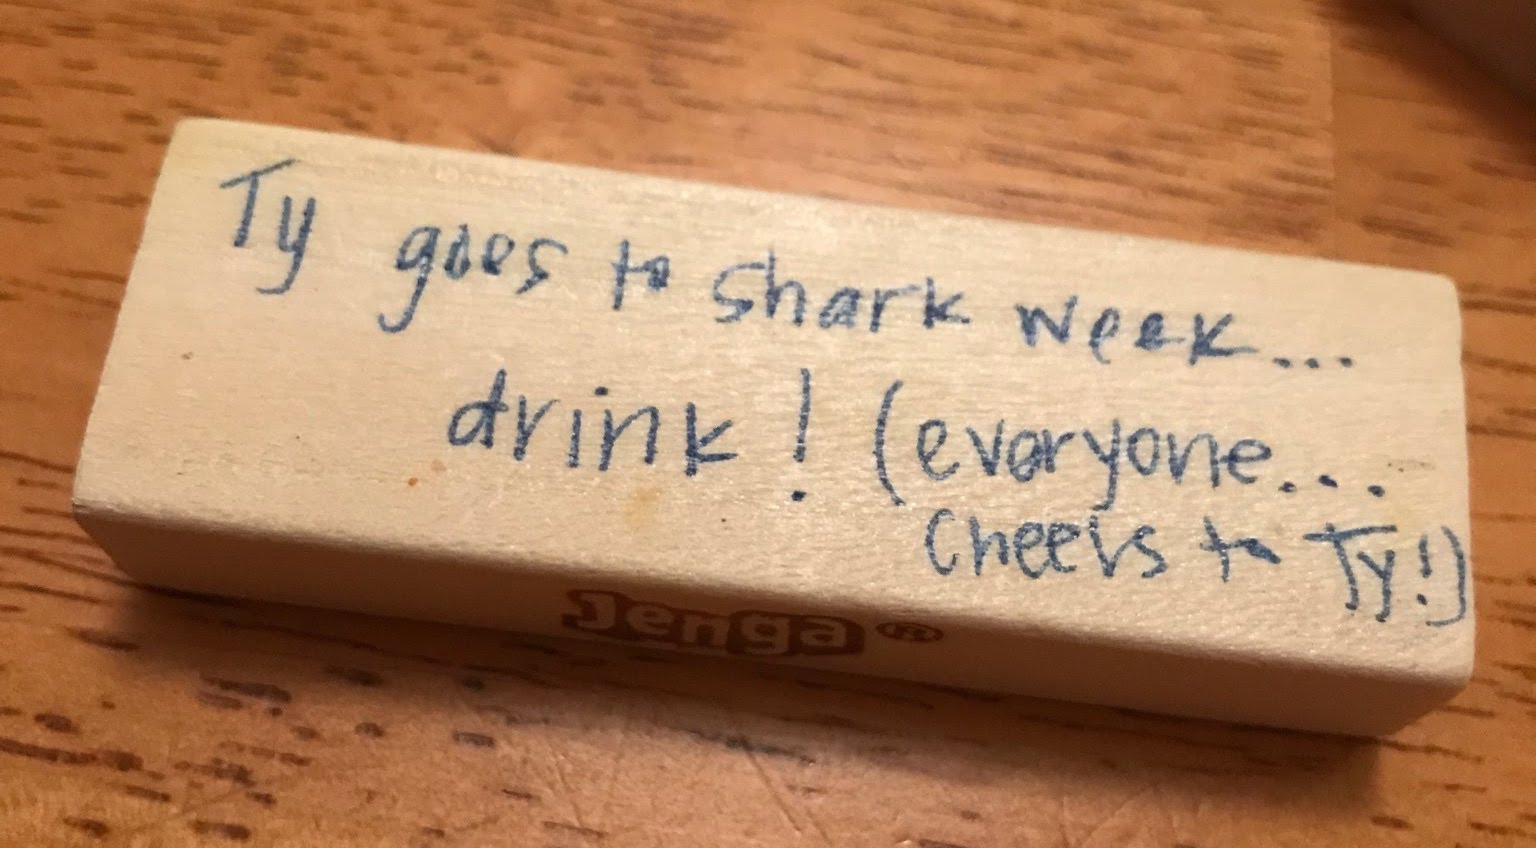 Ty goes to shark week...
drink! (everyone...
cheers to Ty!)
Jenga®